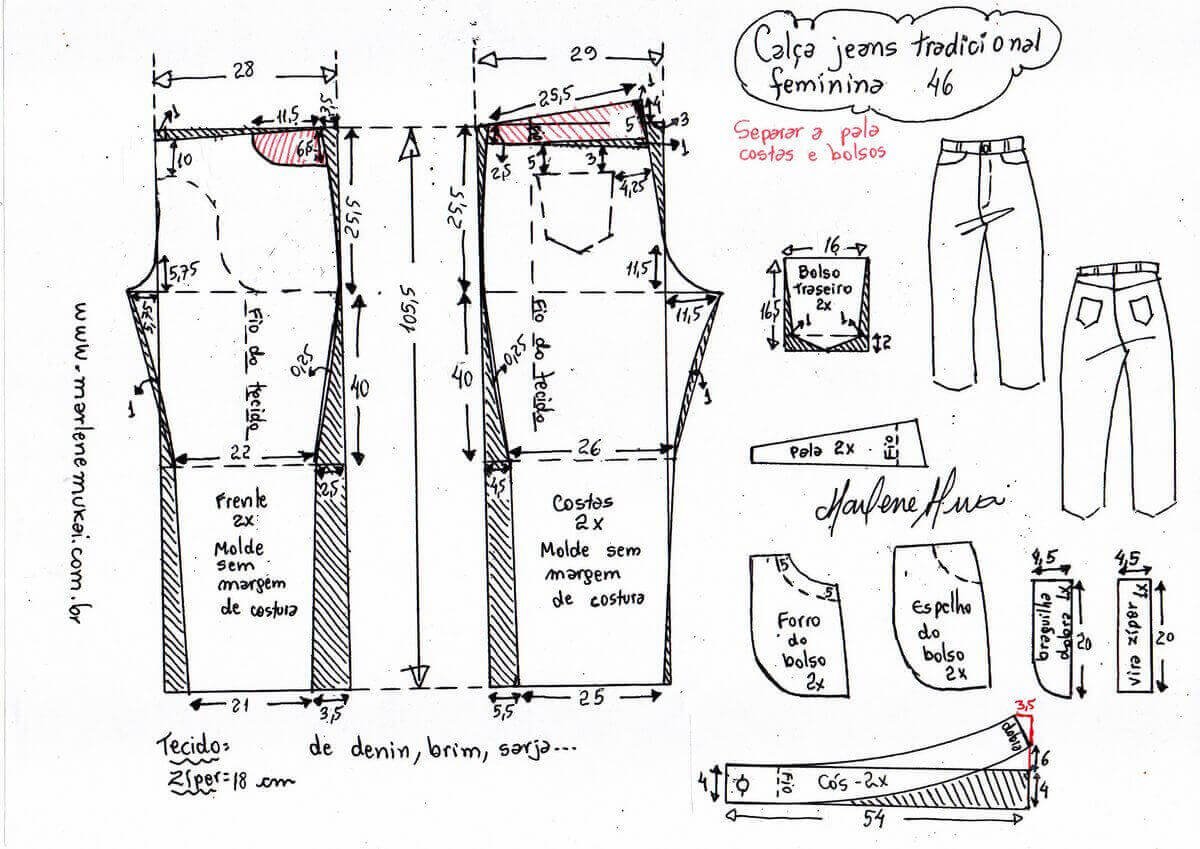 Calça jeans tradicional
feminina 46
Separar a pala
costas e bolsos
28
11,5
1
10
6,5
25,5
5,75
40
0,25
Fio do tecido
1
22
2,5
Frente
2x
Molde
sem
margem
de costura
21
3,5
105,5
29
25,5
1
4
5
3
1
2,5
5
3
4,25
25,5
11,5
11,5
Fio do tecido
0,25
40
1
26
4,5
Costas
2x
Molde sem
margem
de costura
5,5
25
www.marlenemukai.com.br
Tecido: de denin, brim, sarja...
Zíper=18 cm
16
Bolso
traseiro
2x
16,5
1
1
2
Pala 2x
Fio
5
5
Forro
do
bolso
2x
Espelho
do
bolso
2x
4,5
braguilha
dobra 1x
20
4,5
vira zíper 1x
20
3,5
dobra
6
4
4
Fio
Cós-2x
54